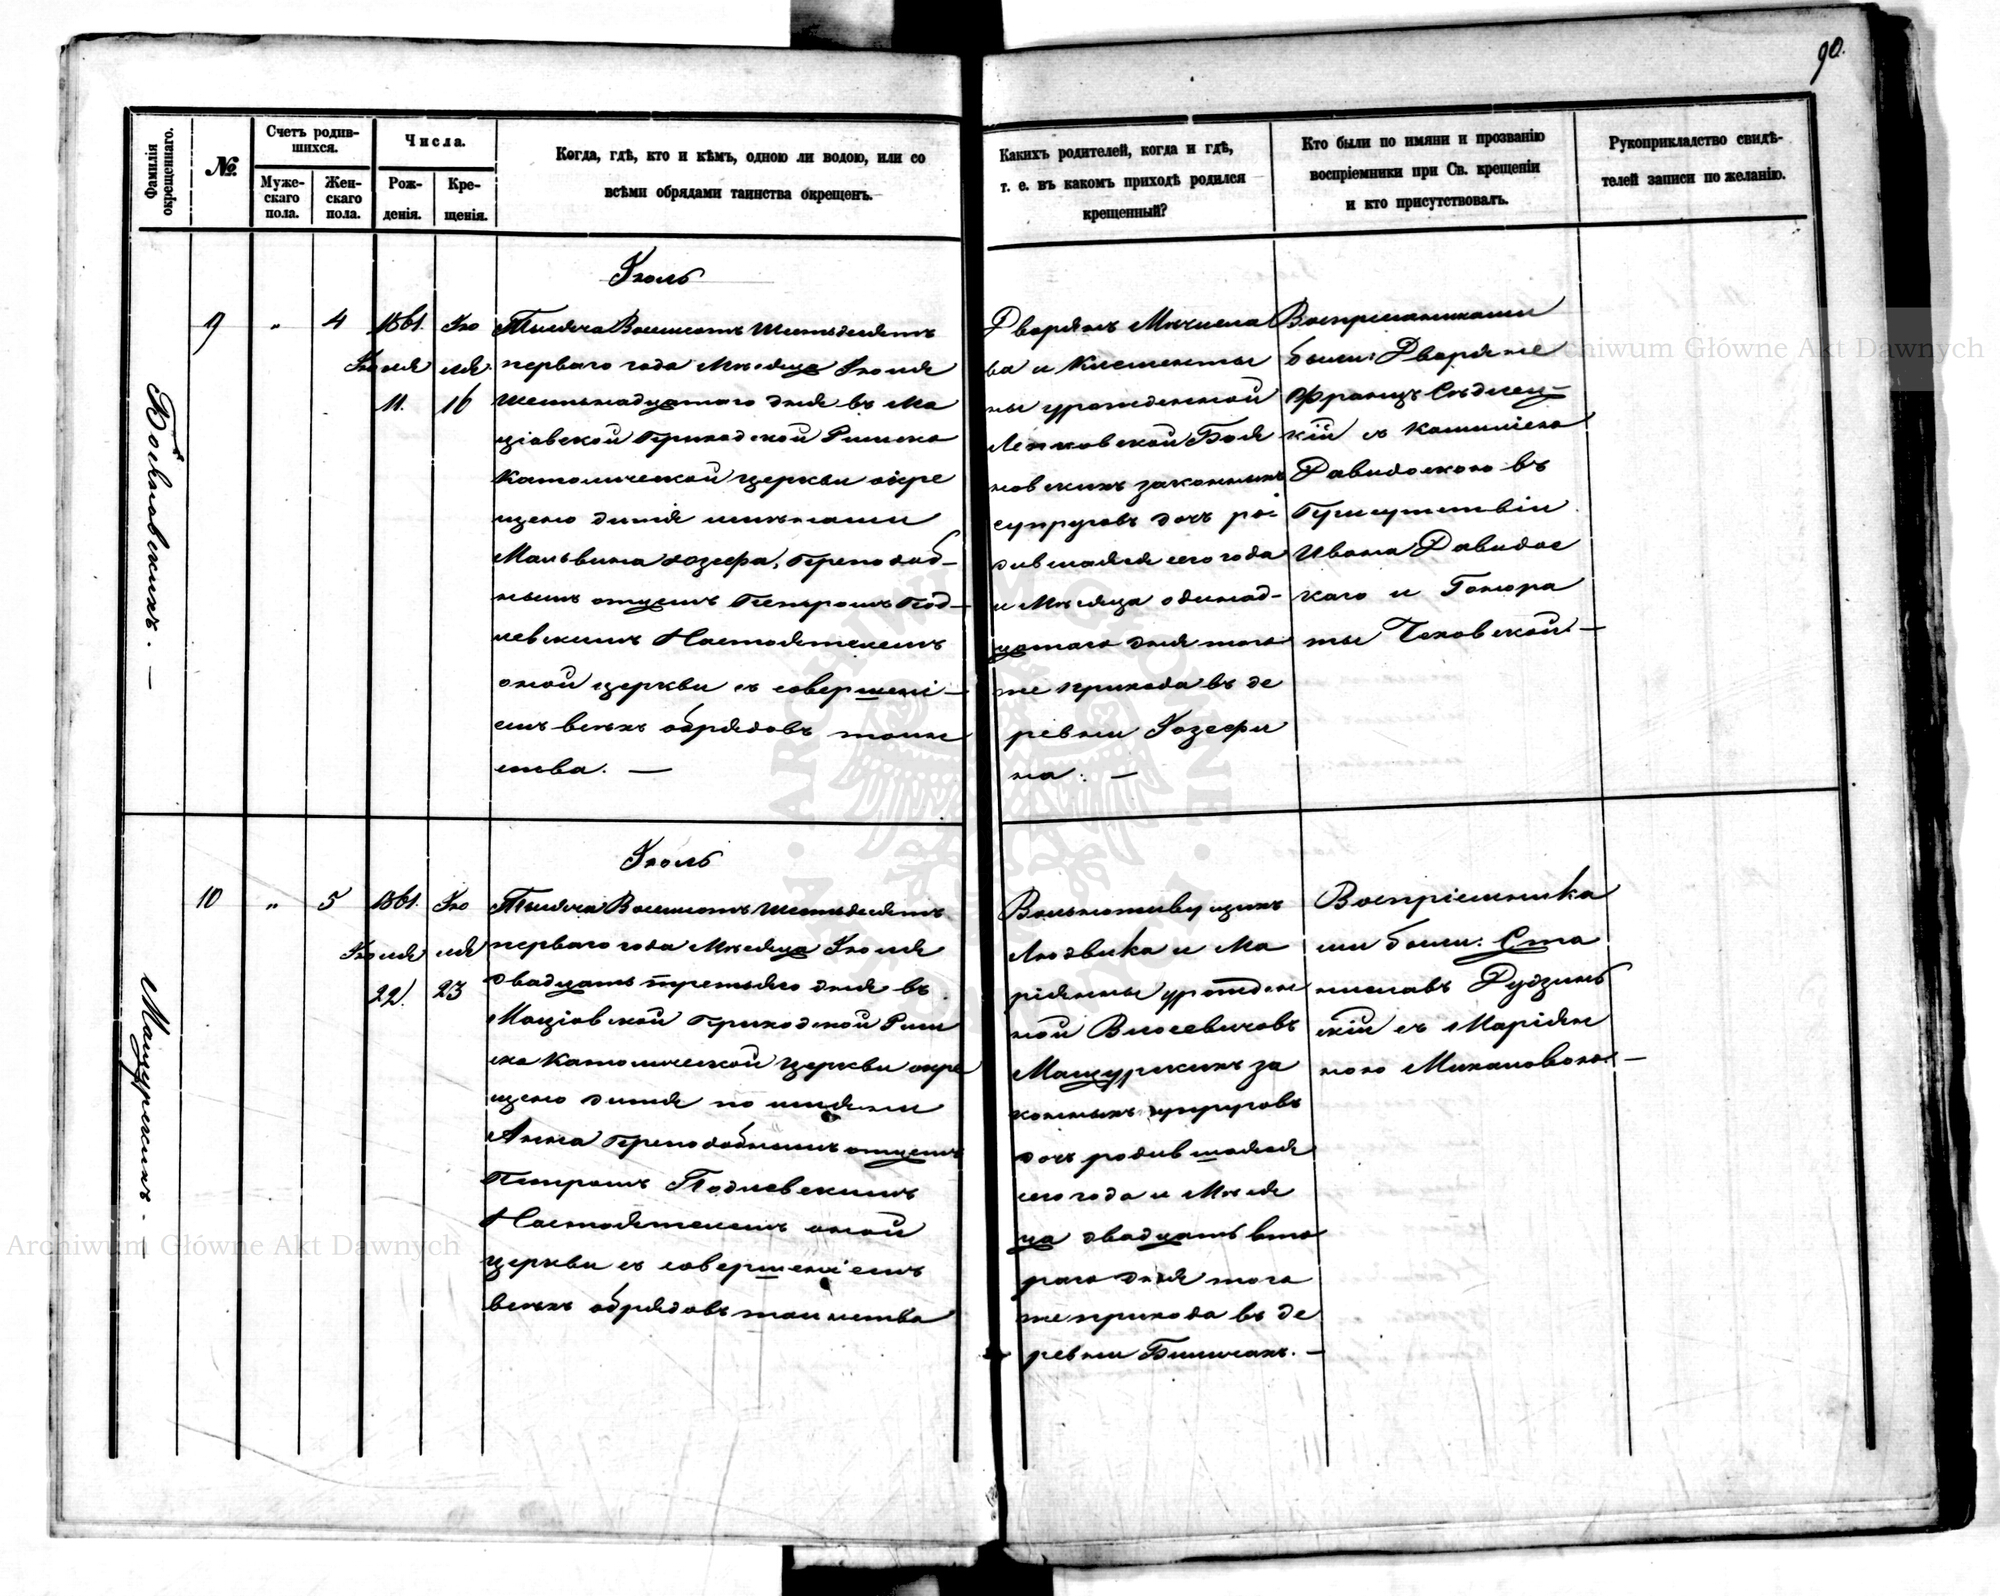 90.
Фамилія окрещеннаго.
№.
Счетъ родив-
шихся.
Муже-
скаго
пола.
Жен-
скаго
пола.
Числа.
Рож-
денія.
Кре-
щенія.
Когда, гдѣ, кто и кѣмъ, одною ли водою, или со
всѣми обрядами таинства окрещенъ.
Какихъ родителей, когда и гдѣ,
т. е. въ какомъ приходѣ родился
крещенный?
Кто были по имяни и прозванію
воспріемники при Св. крещеніи
и кто присутствовалъ.
Рукоприкладство свидѣ-
телей записи по желанію.
Іюль
9 " 4 1861. Іюля 11. Іюля 16
Тысяча Восемсотъ Шестьдесятъ
перваго года Мѣсяца Іюля
шестьнадцатого дня въ Ма
ціовской Приходской Римско
Католической церкви окре
щено дитя имѣнами
Мальвина Юзефа, Преподоб-
нымъ отцемъ Петромъ Под-
левскимъ Настоятелемъ
оной церкви съ совершені-
емъ всѣхъ обрядовъ таин
ства. —
Дворянъ Мѣчисла
ва и Клементы
ны урожденной
новскихъ законныхъ
супруговъ дочь ро
дившаяся сего года
и Мѣсяца одинад-
цатого дня того
же прихода въ де
ревни Юзефи
на. —
Воспріемниками
были: Дворяне
Францъ Сѣдлец-
кій съ Камиліею
Давидоскою въ
Присутствіи
Ивана Давидос
каго и Гонора
ты Чеховской —
Іюль
Мацурскихъ. —
10 " 5 1861. Іюля 22. Іюля 23
Тысяча Восемсотъ Шестьдесятъ
перваго года Мѣсяца Іюля
двадцать третьяго дня въ
Маціовской Приходской Рим
ско Католической церкви окре
щено дитя по имяни
Анна Преподобнымъ отцемъ
Петромъ Подлевскимъ
Настоятелемъ оной
церкви съ совершеніемъ
всѣхъ обрядовъ таинства
Вольноживущихъ
Людвика и Ма
ріянны урожден
ной
Мацурскихъ за
конныхъ супруговъ
дочь родившаяся
сего года и Мѣся
ца двадцать вто
раго дня того
же прихода въ де
ревни —
Воспріемника
ми были: Ста
ниславъ Рудзинь
скій съ Маріян
ною —
Archiwum Główne Akt Dawnych
Archiwum Główne Akt Dawnych